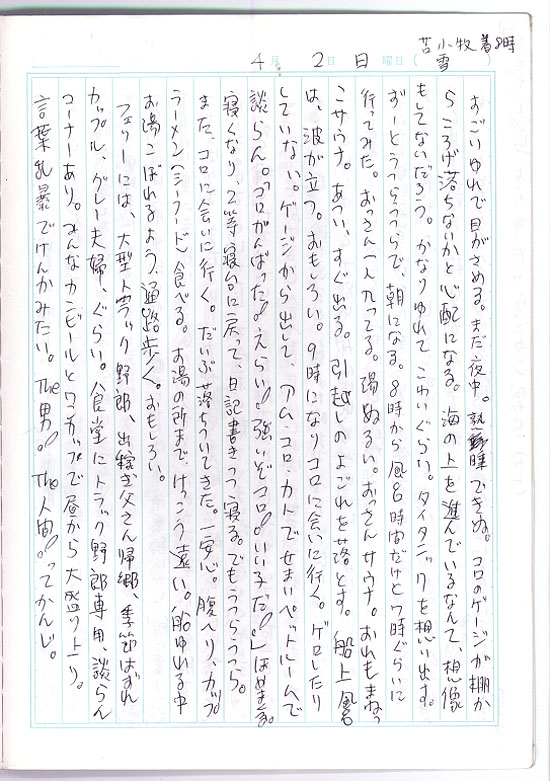 苫小牧着8時
4月 2日 日 曜日 ( 雪 )
すごいゆれで目がさめる。まだ夜中。熟睡できぬ。コロのゲージが棚か
らころげ落ちないかと心配になる。海の上を進んでいるなんて、想像
もしてないだろう。かなりゆれてこわいぐらい。タイタニックを想い出す。
ずーとうつらうつらで、朝になる。8時から風呂時間だけど7時ぐらいに
行ってみた。おっさん一人入ってる。湯ぬるい。おっさんサウナ。おれもまねっ
こサウナ。あつい、すぐ出る。引越しのよごれを落とす。船上風呂
は、波が立つ。おもしろい。9時になりコロに会いに行く。ゲロしたり
していない。ゲージから出して、アム・コロ・カトでせまいペットルームで
談らん。「コロがんばった!えらい!強いぞコロ!いい子だ!」ほめまくる。
寝くなり、2等寝台に戻って、日記書きつつ寝る。でもうつらうつら。
また、コロに会いに行く。だいぶ落ちついてきた。一安心。腹へり、カップ
ラーメン(シーフード)食べる。お湯の所まで、けっこう遠い。船ゆれる中
お湯こぼれるよう、通路歩く。おもしろい。
フェリーには、大型トラック野郎、出稼ぎ父さん帰郷、季節はずれ
カップル、グレー夫婦、ぐらい。食堂にトラック野郎専用、談らん
コーナーあり。みんなカンビールとワンカップで昼から大盛り上り。
言葉乱暴でけんかみたい。The男!The人間!ってかんじ。